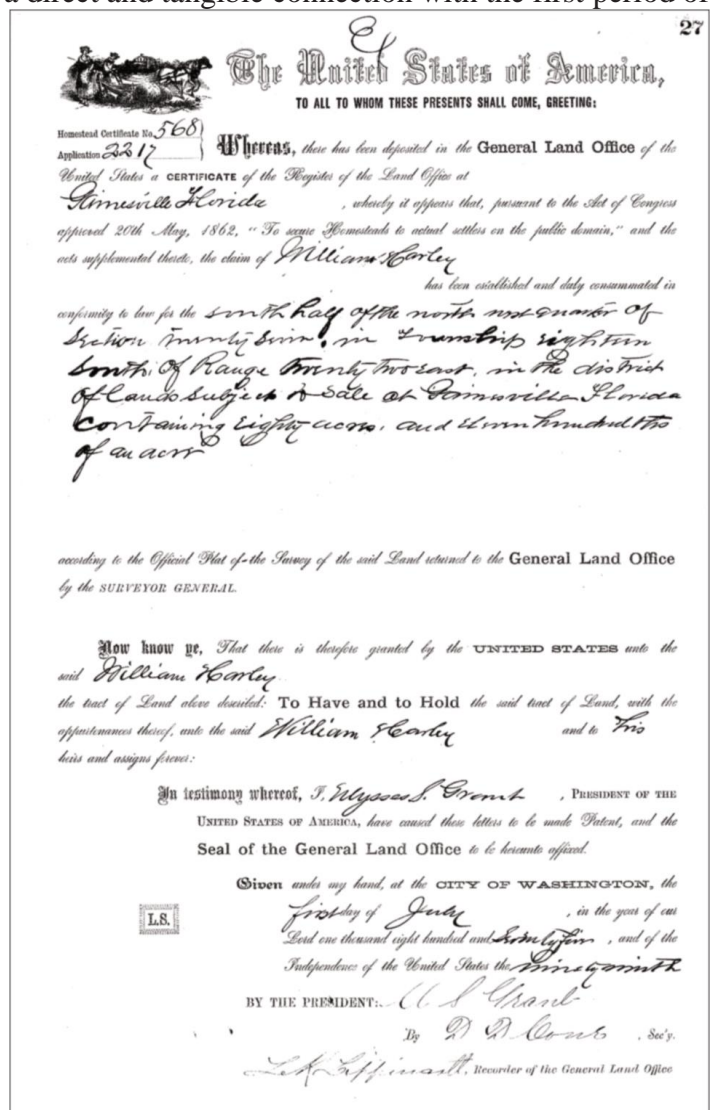 a direct and tangible connection with the first period of
27
The United States of America,
TO ALL TO WHOM THESE PRESENTS SHALL COME, GREETING:
Homestead Certificate No. 568
Application 2217
Whereas, there has been deposited in the General Land Office of the
United States a CERTIFICATE of the Register of the Land Office at
Gainesville Florida , whereby it appears that, pursuant to the Act of Congress
approved 20th May, 1862, "To secure Homesteads to actual settlers on the public domain," and the
acts supplemental thereto, the claim of William Harley
has been established and duly consummated in
conformity to law for the south half of the north west quarter of
Section twenty seven, in Township eighteen
South, Of Range twenty two east, in the district
of Lands subject to Sale at Gainesville Florida
containing Eighty acres, and eleven hundredths
of an acre
according to the Official Plat of the Survey of the said Land returned to the General Land Office
by the SURVEYOR GENERAL.
Now know ye, That there is therefore granted by the UNITED STATES unto the
said William Harley
the tract of Land above described: To Have and to Hold the said tract of Land, with the
appurtenances thereof, unto the said William Harley and to his
heirs and assigns forever:
In testimony whereof, I, Ulysses S. Grant , PRESIDENT OF THE
UNITED STATES OF AMERICA, have caused these letters to be made Patent, and the
Seal of the General Land Office to be hereunto affixed.
Given under my hand, at the CITY OF WASHINGTON, the
L.S.
first day of July , in the year of our
Lord one thousand eight hundred and Seventy five , and of the
Independence of the United States the ninety ninth
BY THE PRESIDENT: U S Grant
By D D Cone , Sec'y.
Lippincott, Recorder of the General Land Office